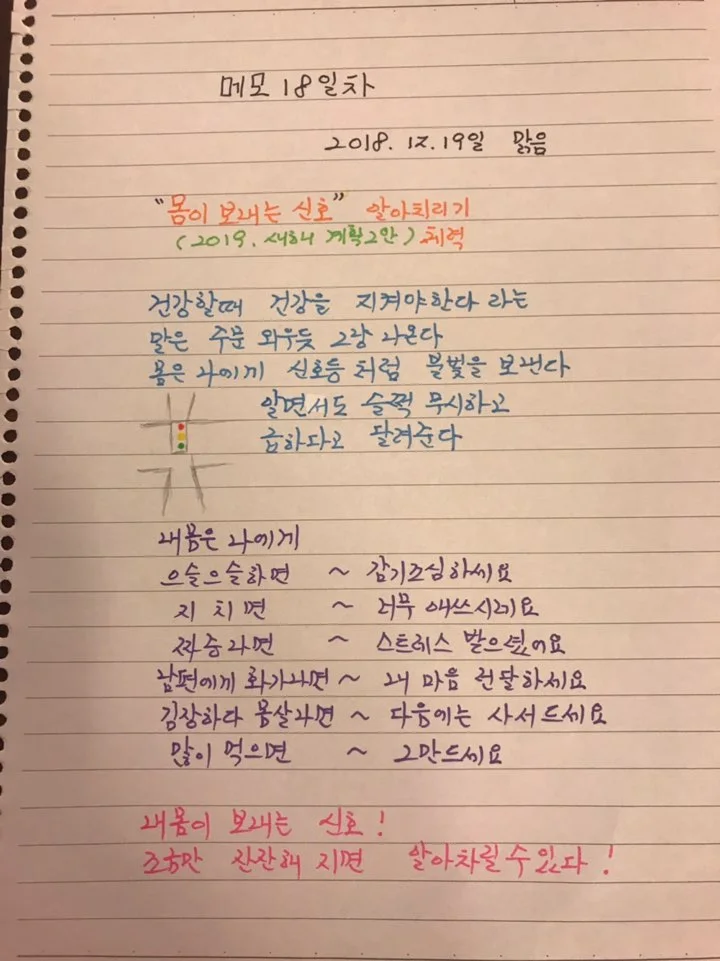 메모 18일차
2018. 12. 19일 맑음
"몸이 보내는 신호" 알아치리기
(2019. 새해 계획2안) 체력
건강할때 건강을 지켜야한다 라는
말은 주문 외우듯 그냥 나온다
몸은 나에게 신호등 처럼 불빛을 보낸다
알면서도 슬쩍 무시하고
급하다고 달려준다
내몸은 나에게
으슬으슬하면 ~ 감기조심하세요
지치면 ~ 너무 애쓰시네요
짜증나면 ~ 스트레스 받으셨어요
남편에게 화가나면 ~ 내 마음 전달하세요
김장하다 몸살나면 ~ 다음에는 사서드세요
많이 먹으면 ~ 그만드세요
내몸이 보내는 신호!
조금만 잔잔해 지면 알아차릴수있다!